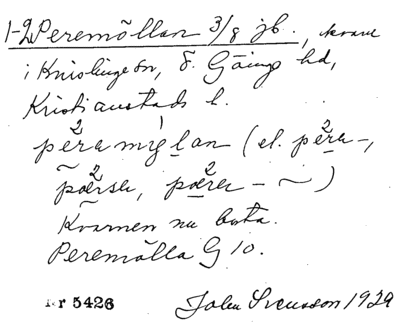 1-2 Peremöllan 3/8 jb., kvarn
i Knislinge sn, Ö. Göinge hd,
Kristianstads l.
pèramiglan (el. pèra-,
pærsa, pæra- ~)
Kvarnen nu borta.
Peremölla G 10.
r 5426 John Svensson 1929